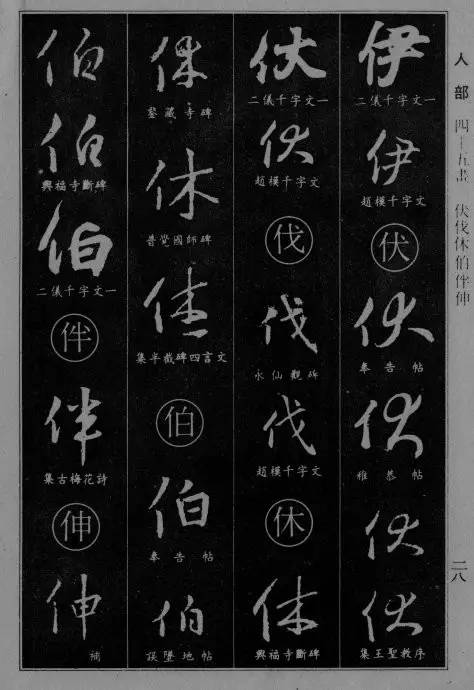 人部 四—五畫 伏伐休伯伴伸
二八
伊
二儀千字文一
伊
趙模千字文
伏
伏
奉告帖
伏
雅恭帖
伏
伏
集王聖教序
伏
二儀千字文一
伏
趙模千字文
伐
伐
水仙觀碑
伐
趙模千字文
休
休
興福寺斷碑
休
鑒藏寺碑
休
普覺國師碑
休
集半截碑四言文
伯
伯
奉告帖
伯
誤墜地帖
伯
伯
興福寺斷碑
伯
二儀千字文一
伴
伴
集古梅花詩
伸
伸
補